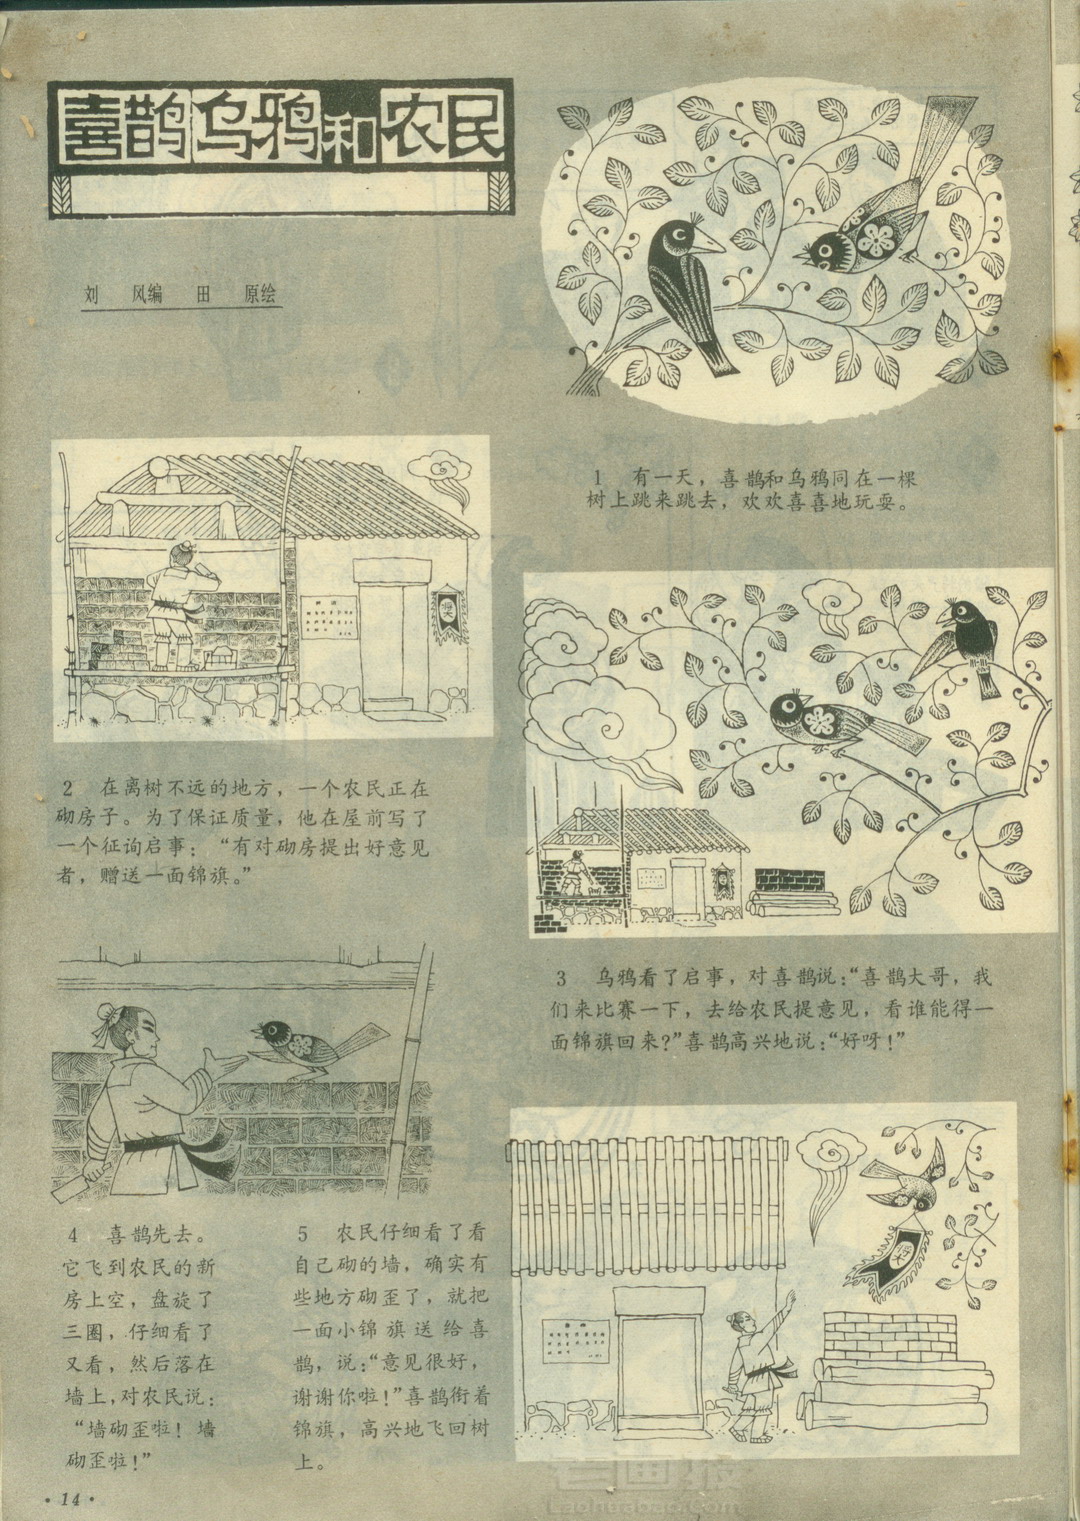 喜鹊乌鸦和农民
刘 风编 田 原绘
1 有一天，喜鹊和乌鸦同在一棵
树上跳来跳去，欢欢喜喜地玩耍。
2 在离树不远的地方，一个农民正在
砌房子。为了保证质量，他在屋前写了
一个征询启事：“有对砌房提出好意见
者，赠送一面锦旗。”
3 乌鸦看了启事，对喜鹊说：“喜鹊大哥，我
们来比赛一下，去给农民提意见，看谁能得一
面锦旗回来？”喜鹊高兴地说：“好呀！”
4 喜鹊先去。
它飞到农民的新
房上空，盘旋了
三圈，仔细看了
又看，然后落在
墙上，对农民说：
“墙砌歪啦！墙
砌歪啦！”
5 农民仔细看了看
自己砌的墙，确实有
些地方砌歪了，就把
一面小锦旗送给喜
鹊，说：“意见很好，
谢谢你啦！”喜鹊衔着
锦旗，高兴地飞回树
上。
·14·
老画报
Laohuabao.Com